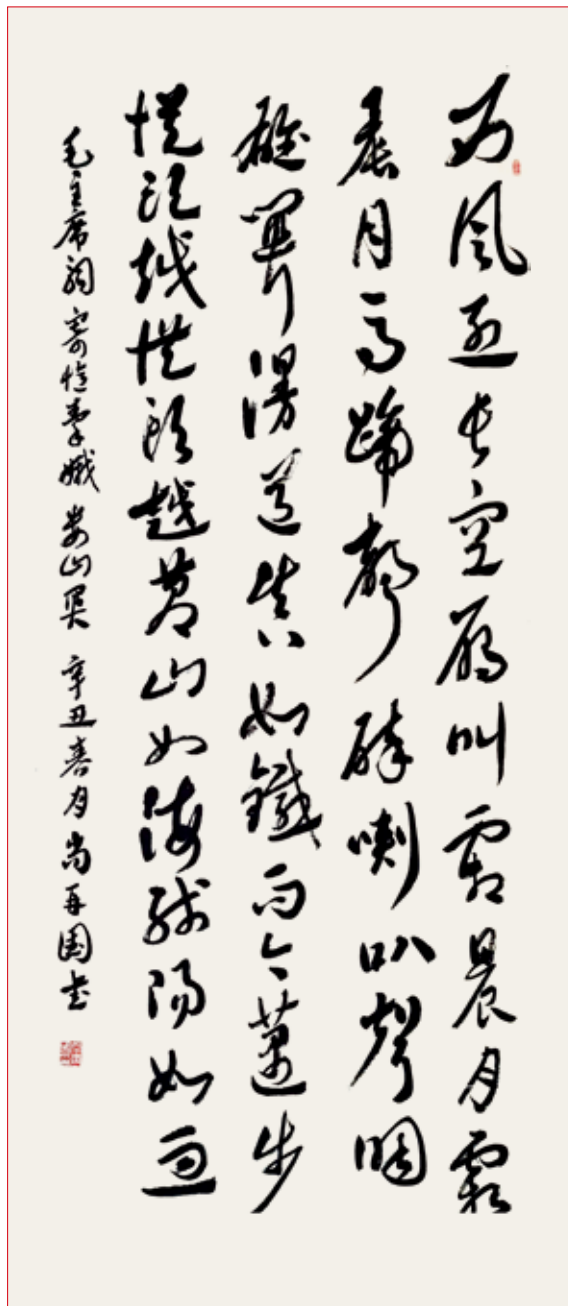 西風烈長空雁叫霜晨月霜
晨月馬蹄聲碎喇叭聲咽
雄關漫道真如鐵而今邁步
從頭越從頭越蒼山如海殘陽如血
毛主席詞寄憶秦娥婁山關辛丑春月尚再國書